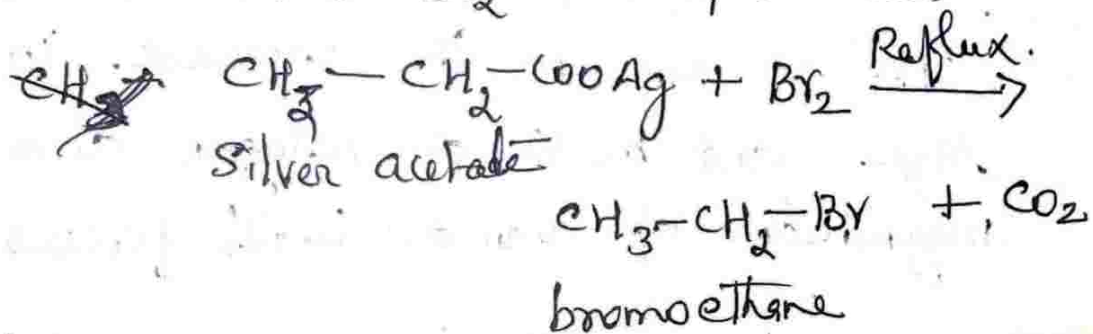 CH₃—CH₂—COOAg + Br₂ Reflux. →
Silver acetate
CH₃—CH₂—Br + CO₂
bromoethane